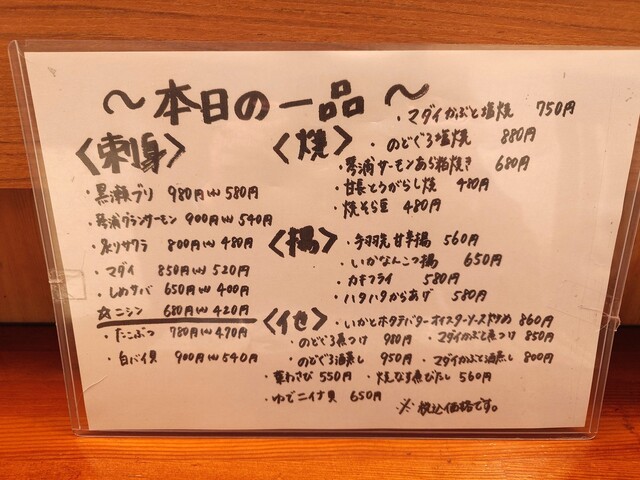 ～本日の一品～
〈刺身〉
・黒瀬ブリ 980円〜580円
・琴浦グランサーモン 900円〜540円
・炙りサワラ 800円〜480円
・マダイ 850円〜520円
・しめサバ 650円〜400円
☆ニシン 680円〜420円
・たこぶつ 780円〜470円
・白バイ貝 900円〜540円
〈焼〉
・マダイかぶと塩焼 750円
・のどぐろ塩焼 880円
・琴浦サーモンあら粕焼き 680円
・甘長とうがらし焼 480円
・焼そら豆 480円
〈揚〉
・手羽先甘辛揚 560円
・いかなんこつ揚 650円
・カキフライ 580円
・ハタハタからあげ 580円
〈イセ〉
・いかとホタテバターオイスターソース炒め 860円
・のどぐろ煮つけ 980円 ・マダイかぶと煮つけ 850円
・のどぐろ酒蒸し 950円 ・マダイかぶと酒蒸し 800円
・葉わさび 550円 ・焼なす煮びたし 560円
・ゆでニイナ貝 650円
※税込価格です。